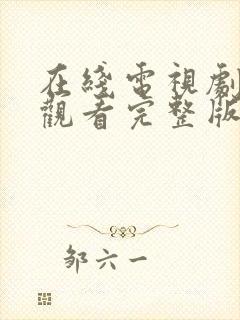 在綫電視劇
觀看完整版
邹六一